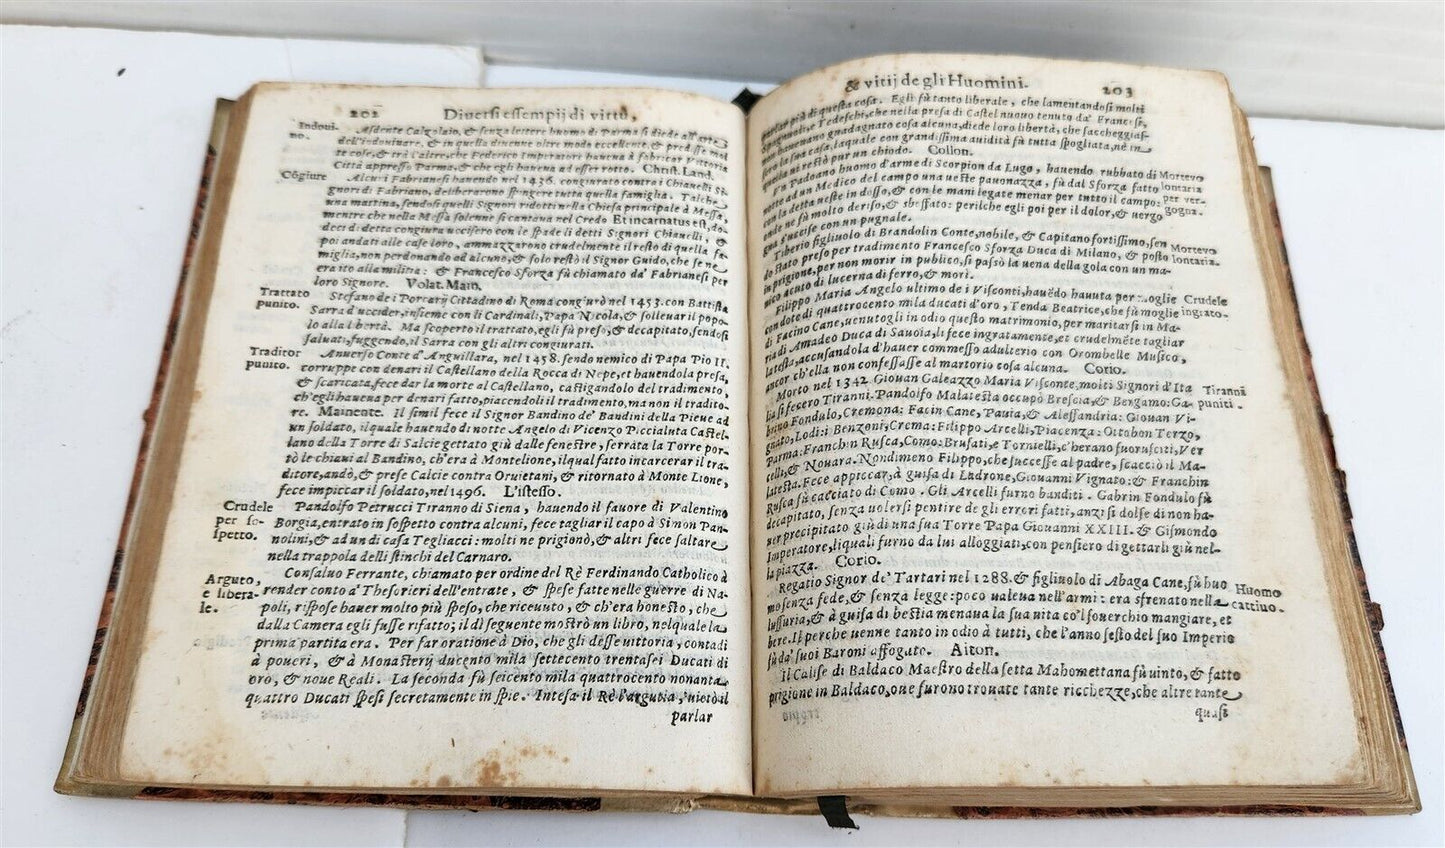 202 Diuersi essempij di virtù,
Indoui-
no.
Asdente Calzolaio, & senza lettere huomo di Parma si diede all'arte
dell'indouinare, & in quella diuenne oltre modo eccellente, & predisse mol
te cose, & trà l'altre, che Federico Imperatori haueua à fabricar Vittoria
Città appresso Parma, & che egli haueua ad esser rotto. Christ. Land.
Cõgiure
Alcuri Fabrianesi hauendo nel 1436. congiurato contra i Chiauelli Si-
gnori di Fabriano, deliberarono spingere tutta quella famiglia. Talche
una martina, sendosi quelli Signori ridotti nella Chiesa principale à Messa,
mentre che nella Messa solenne si cantaua nel Credo Et incarnatus est, do-
deci di detta congiura uccisero con le spade li detti Signori Chiauelli, &
poi andati alle case loro, ammazzarono crudelmente il resto di quella fa-
miglia, non perdonando ad alcuno, & solo restò il Signor Guido, che se ne
era ito alla militia: & Francesco Sforza fù chiamato da' Fabrianesi per
loro Signore. Volat. Main.
Trattato
punito.
Stefano de i Porcarij Cittadino di Roma congiurò nel 1453. con Battista
Sarra d'uccider, insieme con li Cardinali, Papa Nicola, & solleuar il popo-
lo alla libertà. Ma scoperto il trattato, egli fù preso, & decapitato, sendosi
saluati, fuggendo, il Sarra con gli altri congiurati.
Traditor
punito.
Anuerso Conte d'Anguillara, nel 1458. sendo nemico di Papa Pio II.
corruppe con denari il Castellano della Rocca di Nepe, et hauendola presa,
& scaricata, fece dar la morte al Castellano, castigandolo del tradimento,
ch'egli haueua per denari fatto, piacendoli il tradimento, ma non il tradito-
re. Mainente. Il simil fece il Signor Bandino de' Bandini della Pieue ad
un soldato, ilquale hauendo di notte Angelo di Vicenzo Piccialuta Castel-
lano della Torre di Salcie gettato giù dalle fenestre, serrata la Torre por-
tò le chiaui al Bandino, ch'era à Montelione, ilqual fatto incarcerar il tra-
ditore, andò, & prese Calcie contra Oruietani, & ritornato à Monte Lione,
fece impiccar il soldato, nel 1496. L'istesso.
Crudele
per so-
spetto.
Pandolfo Petrucci Tiranno di Siena, hauendo il fauore di Valentino
Borgia, entrato in sospetto contra alcuni, fece tagliar il capo à Simon Pan-
nolini, & ad un di casa Tegliacci: molti ne prigionò, & altri fece saltare
nella trappola delli stinchi del Carnaro.
Arguto,
e libera-
le.
Consaluo Ferrante, chiamato per ordine del Rè Ferdinando Catholico à
render conto à Thesorieri dell'entrate, & spese fatte nelle guerre di Na-
poli, rispose hauer molto più speso, che riceuuto, & ch'era honesto, che
dalla Camera egli fusse rifatto; il dì seguente mostrò un libro, nelquale la
prima partita era. Per far oratione à Dio, che gli desse uittoria, contadi
à poueri, & à Monasterij ducento mila settecento trentasei Ducati di
oro, & noue Reali. La seconda fù seicento mila quattrocento nonanta
quattro Ducati spesi secretamente in spie. Intesa il Rè l'argutia, uietò il
parlar
& vitij de gli Huomini. 203
parlar più di questa cosa. Egli fù tanto liberale, che lamentandosi molti
Spagnuoli, e Tedeschi, che nella presa di Castel nuouo tenuto da' Francesi,
non haueuano guadagnato cosa alcuna, diede loro libertà, che saccheggias-
sero la sua casa, laquale con grandissima auidità fù tutta spogliata, nè in
quella ui restò pur un chiodo. Collon.
Vn Padoano huomo d'arme di Scorpion da Lugo, hauendo rubbato di
notte ad un Medico del campo una ueste pauonazza, fù dal Sforza fatto
con la detta ueste in dosso, & con le mani legate menar per tutto il campo:
onde ne fù molto deriso, & sbeffato: perilche egli poi per il dolor, & uergo
gna s'uccise con un pugnale.
Mortevo
lontaria
per ver-
gogna.
Tiberio figliuolo di Brandolin Conte, nobile, & Capitano fortissimo, sen
do stato preso per tradimento Francesco Sforza Duca di Milano, & posto
in prigione, per non morir in publico, si passò la uena della gola con un ma-
nico acuto di lucerna di ferro, & morì.
Mortevo
lontaria.
Filippo Maria Angelo ultimo de i Visconti, hauẽdo hauuta per moglie
con dote di quattrocento mila ducati d'oro, Tenda Beatrice, che fù moglie
di Facino Cane, uenutogli in odio questo matrimonio, per maritarsi in Ma-
ria di Amadeo Duca di Sauoia, li fece ingratamente, et crudelmẽte tagliar
la testa, accusandola d'hauer commesso adulterio con Orombelle Musico,
ancor ch'ella non confessasse al martorio cosa alcuna. Corio.
Crudele
ingrato.
Morto nel 1342 Giouan Galeazzo Maria Visconte, molti Signori d'Ita
lia si fecero Tiranni. Pandolfo Malatesta occupò Brescia, & Bergamo: Ga-
brino Fondulo, Cremona: Facin Cane, Pauia, & Alessandria: Giouan Vi-
gnato, Lodi: i Benzoni, Crema: Filippo Arcelli, Piacenza: Ottobon Terzo,
Parma: Franchin Rusca, Como: Brusati, e Tornielli, c'herano fuorusciti, Ver
celli, & Nouara. Nondimeno Filippo, che successe al padre, scacciò il Ma-
latesta. Fece appiccar, à guisa di Ladrone, Giouanni Vignato: & Franchin
Rusca fù cacciato di Como. Gli Arcelli furno banditi. Gabrin Fondulo fù
decapitato, senza uolersi pentire de gli errori fatti, anzi si dolse di non ha-
uer precipitato giù di una sua Torre Papa Giouanni XXIII. & Gismondo
Imperatore, liquali furno da lui alloggiati, con pensiero di gettarli giù nel-
la piazza. Corio.
Tirannà
puniti.
Regatio Signor de' Tartari nel 1288. & figliuolo di Abaga Cane, fù huo
mo senza fede, & senza legge: poco ualeua nell'armi: era sfrenato nella
lussuria, & à guisa di bestia menaua la sua uita co'l souerchio mangiare, et
bere. Il perche uenne tanto in odio à tutti, che l'anno sesto del suo Imperio
fù da' suoi Baroni affogato. Aiton.
Huomo
cattiuo.
Il Calife di Baldaco Maestro della setta Mahomettana fù uinto, & fatto
prigione in Baldaco, oue furono trouate tante ricchezze, che altre tante
quasi